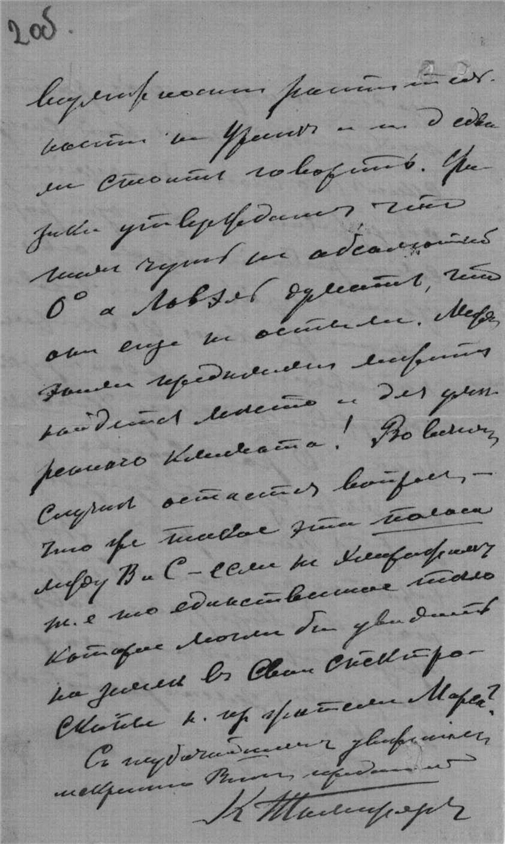 2 об.
растител
ности на Уранѣ и т д едва
ли стоитъ говорить. Фи
зики утверждаютъ что
тамъ чуть не абсолютный
0° а Ловэль думаетъ, что
они еще не остыли. Между
этими предѣлами
найдется мѣсто и для умѣ
реннаго климата! Во всякомъ
случаѣ остается вопросъ, —
что же такое эта полоса
между B и C — если не хлорофиллъ
т. е то единственное тѣло
которое могли бы увидѣть
на землѣ въ свои спектро-
скопы н. пр жители Марса?
Съ глубочайшимъ уваженіемъ
искренно Вамъ преданный
К Тимирязевъ